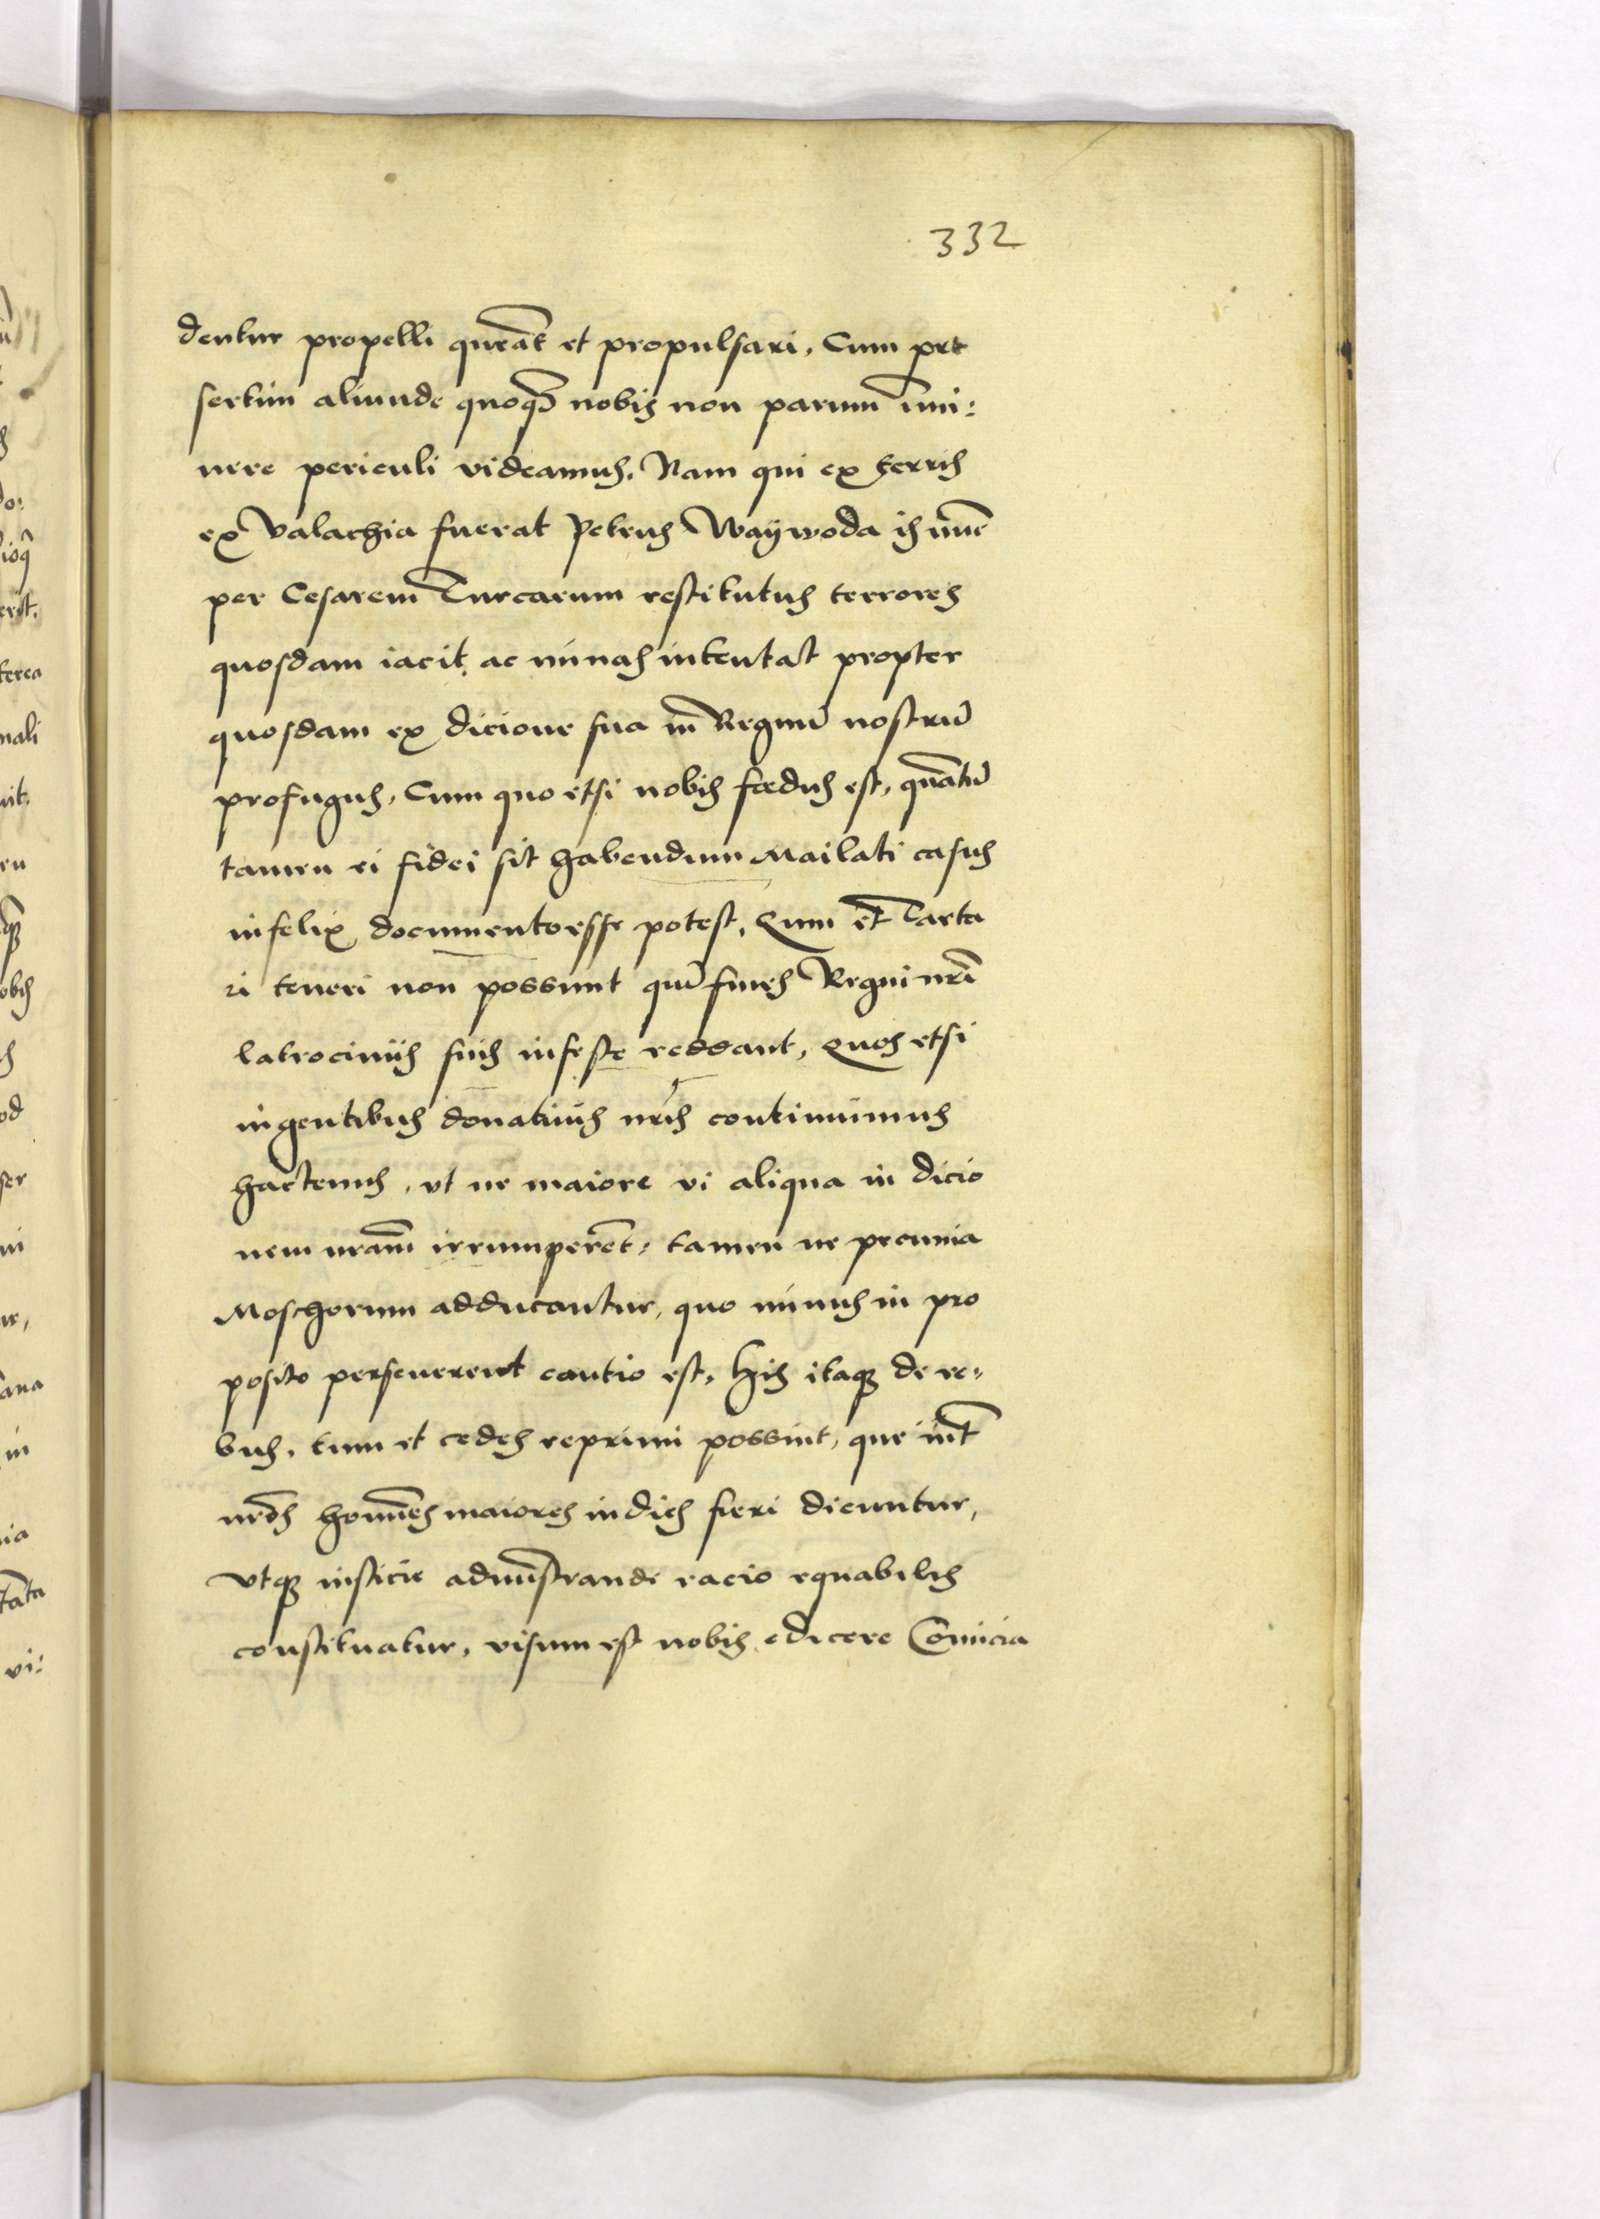 332
dentur propelli queāt et propulsari, Cum pre
sertim aliunde quoqȝ nobis non parum īmi:
nere periculi videamus. Nam qui ex terris
ex Valachia fuerat Petrus Waÿwoda is nūc
per Cesarem Turcarum restitutus terrores
quosdam iacit, ac minas intentat propter
quosdam ex dicione sua in Regnū nostrū
profugus, Cum quo etsi nobis fœdus est, quātū
tamen ei fidei sit habendum Mailati casus
infelix documento esse potest, Qum et Tarta
ri teneri non possunt quī fines Regni nrī
latrociniis suis infeste reddant, Quos etsi
ingentibus donativis nrīs continuimus
hactenus, ut ne maiore vi aliqua in dicio
nem nrām irrumperēt, tamen ne pecunia
Moschorum adducantur, quo minus in pro
posito perseverent cautio est, His itaqȝ de re,
bus, tum et cedes reprimi possint, que int
nrōs homīes maiores indies fieri dicuntur,
Vtqȝ iusticie admīstrande racio equabilis
constituatur, visum est nobis edicere Comicia
do:
terea
nali
in
vi: